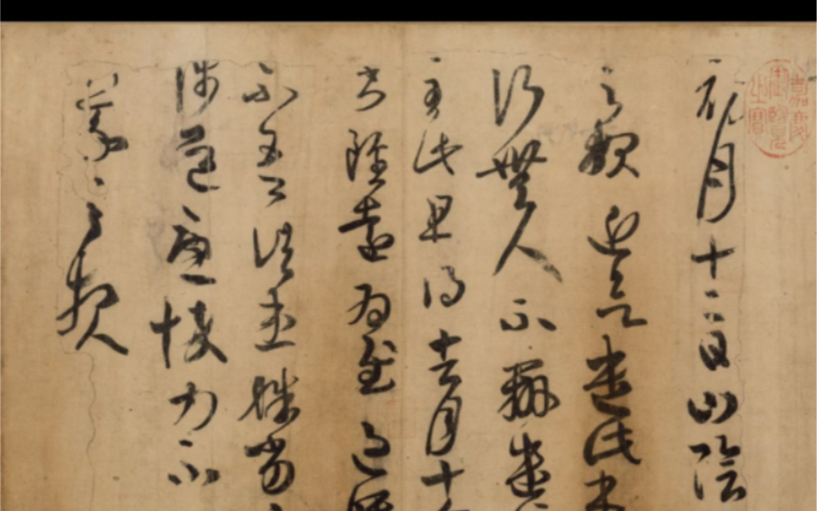 嘉慶御覽之寶
初月十二日山陰
之報近欲遣此
行無人不辦遣
至此且得去月十
書雖遠為慰過
不吾諸患殊
涉道憂悴力不
羲之報